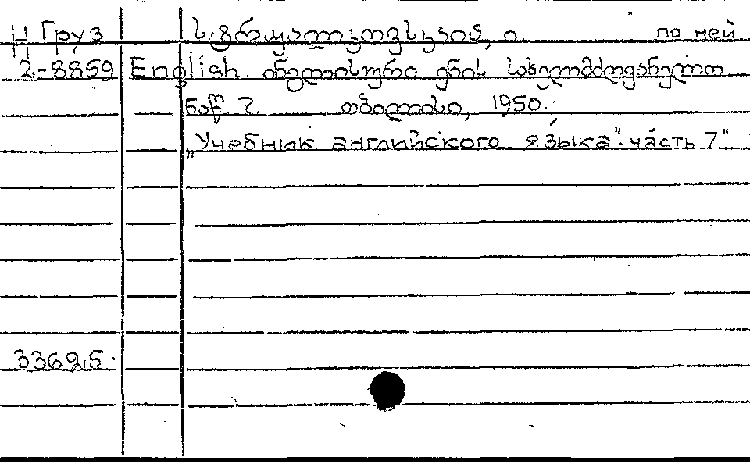 Н Груз по ней
2-8859 English ინგლისური ენის სახელმძღვანელო
ნაწ 7. თბილისი, 1950.
„Учебник английского языка". часть 7"
33625.